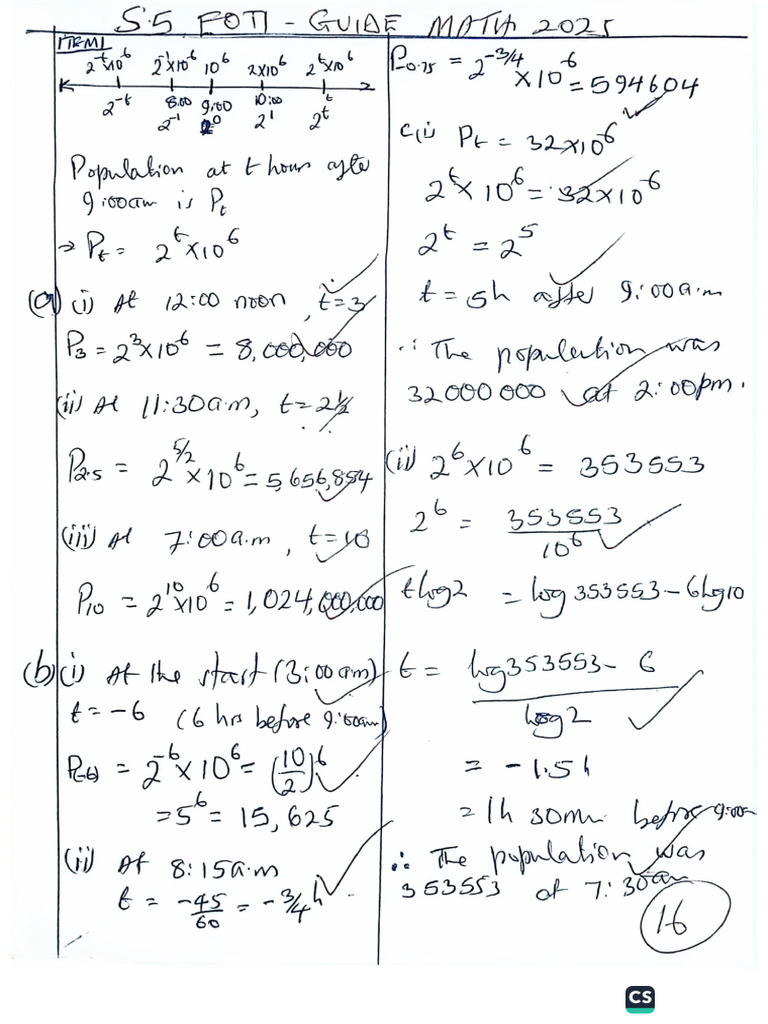 S.5 EOT1 - GUIDE MATH 2025
ITEM 1
2^-t x10^6 2^-1 x10^6 10^6 2x10^6 2^t x10^6
8:00 9:00 10:00 t
2^-t 2^-1 2^0 2^1 2^t
Population at t hours after
9:00am is Pt
→ Pt = 2^t x10^6
(a) (i) At 12:00 noon, t=3
P3 = 2^3 x10^6 = 8,000,000
(ii) At 11:30a.m, t=2½
P2.5 = 2^5/2 x10^6 = 5,656,854
(iii) At 7:00a.m, t=10
P10 = 2^10 x10^6 = 1,024,000,000
(b) (i) At the start (3:00am)
t = -6 (6 hrs before 9:00am)
P(-6) = 2^-6 x 10^6 = (10/2)^6
= 5^6 = 15,625
(ii) At 8:15a.m
t = -45/60 = -3/4 h
P0.75 = 2^-3/4 x10^-6 = 594604
c(i) Pt = 32x10^6
2^t x 10^6 = 32x10^6
2^t = 2^5
t = 5h after 9:00a.m
∴ The population was
32000000 at 2:00pm.
(ii) 2^6 x10^6 = 353553
2^6 = 353553/10^6
tlog2 = log353553-6log10
t = log353553-6/log2
= -1.5h
= 1h 30mn before 9:00am
∴ The population was
353553 at 7:30am
16
CS